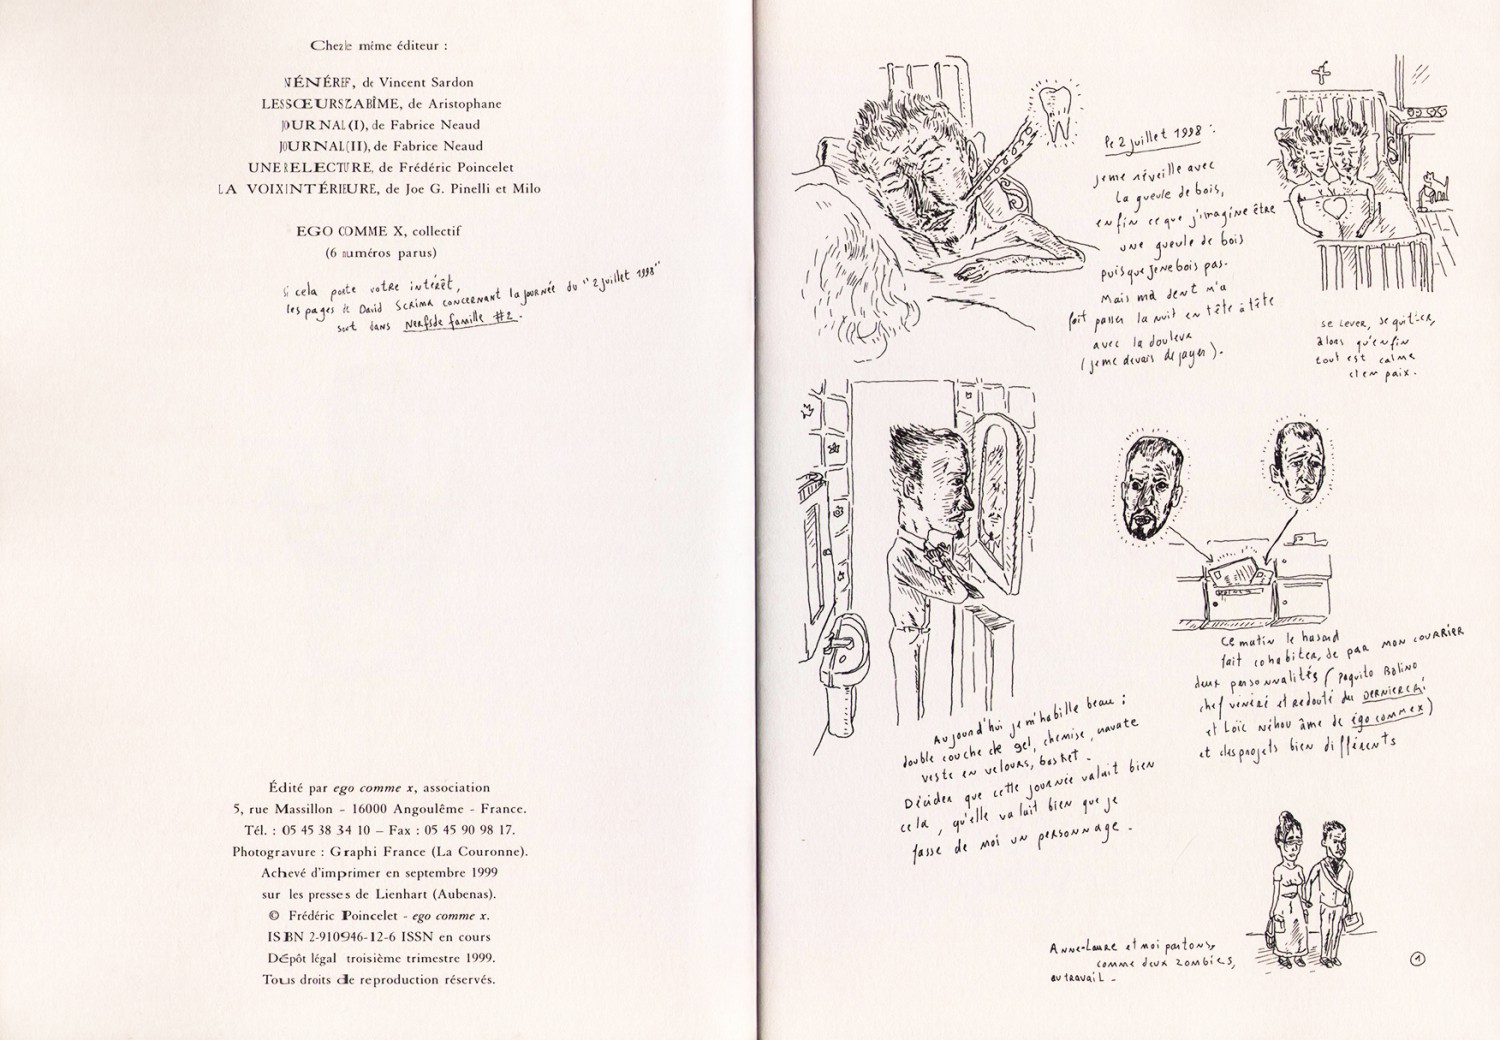 Chez le même éditeur :
VÉNÉREF, de Vincent Sardon
LES SŒURS ZABÎME, de Aristophane
JOURNAL (I), de Fabrice Neaud
JOURNAL (II), de Fabrice Neaud
UNE RELECTURE, de Frédéric Poincelet
LA VOIX INTÉRIEURE, de Joe G. Pinelli et Milo
EGO COMME X, collectif
(6 numéros parus)
Si cela porte votre intérêt,
les pages de David Scrima concernant la journée du "2 juillet 1998"
sont dans Nerfs de famille #2.
Édité par ego comme x, association
5, rue Massillon - 16000 Angoulême - France.
Tél. : 05 45 38 34 10 – Fax : 05 45 90 98 17.
Photogravure : Graphi France (La Couronne).
Achevé d'imprimer en septembre 1999
sur les presses de Lienhart (Aubenas).
© Frédéric Poincelet - ego comme x.
ISBN 2-910946-12-6 ISSN en cours
Dépôt légal troisième trimestre 1999.
Tous droits de reproduction réservés.
le 2 juillet 1998 :
je me réveille avec
la gueule de bois,
enfin ce que j'imagine être
une gueule de bois
puisque je ne bois pas.
Mais ma dent m'a
fait passer la nuit en tête à tête
avec la douleur
(je me devais de payer).
se lever, se quitter,
alors qu'enfin
tout est calme
et en paix.
Aujourd'hui je m'habille beau :
double couche de gel, chemise, cravate
veste en velours, basket.
Décider que cette journée valait bien
cela, qu'elle valait bien que je
fasse de moi un personnage.
Ce matin le hasard
fait cohabiter, de par mon courrier
deux personnalités (Paquito Bolino
chef vénéré et redouté du DERNIER CRI
et Loïc Néhou âme de égo comme x)
et des projets bien différents
Anne-Laure et moi partons,
comme deux zombies,
au travail.
1